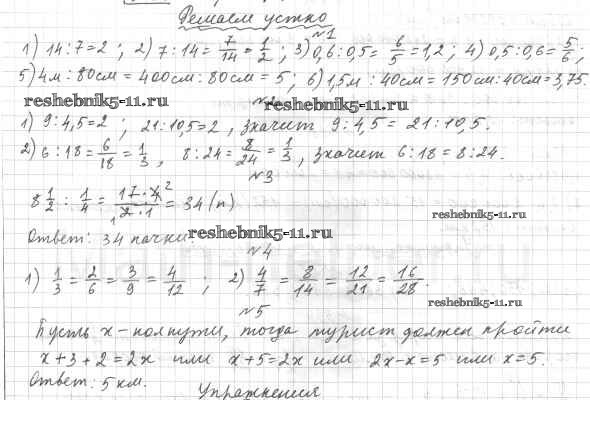 Решаем устно
№1
1) 14:7=2; 2) 7:14=7/14=1/2; 3) 0,6:0,5=6/5=1,2; 4) 0,5:0,6=5/6;
5) 4м:80см=400см:80см=5; 6) 1,5м:40см=150см:40см=3,75.
reshebnik5-11.ru
№2
1) 9:4,5=2; 21:10,5=2, значит 9:4,5=21:10,5.
reshebnik5-11.ru
2) 6:18=6/18=1/3, 8:24=8/24=1/3, значит 6:18=8:24.
№3
8 1/2 : 1/4 = 17·4 2/1 2·1 = 34 (п)
reshebnik5-11.ru
Ответ: 34 пачки.
reshebnik5-11.ru
№4
1) 1/3=2/6=3/9=4/12; 2) 4/7=8/14=12/21=16/28.
reshebnik5-11.ru
№5
Пусть x-полпути, тогда турист должен пройти
x+3+2=2x или x+5=2x или 2x-x=5 или x=5.
Ответ: 5 км.
Упражнения